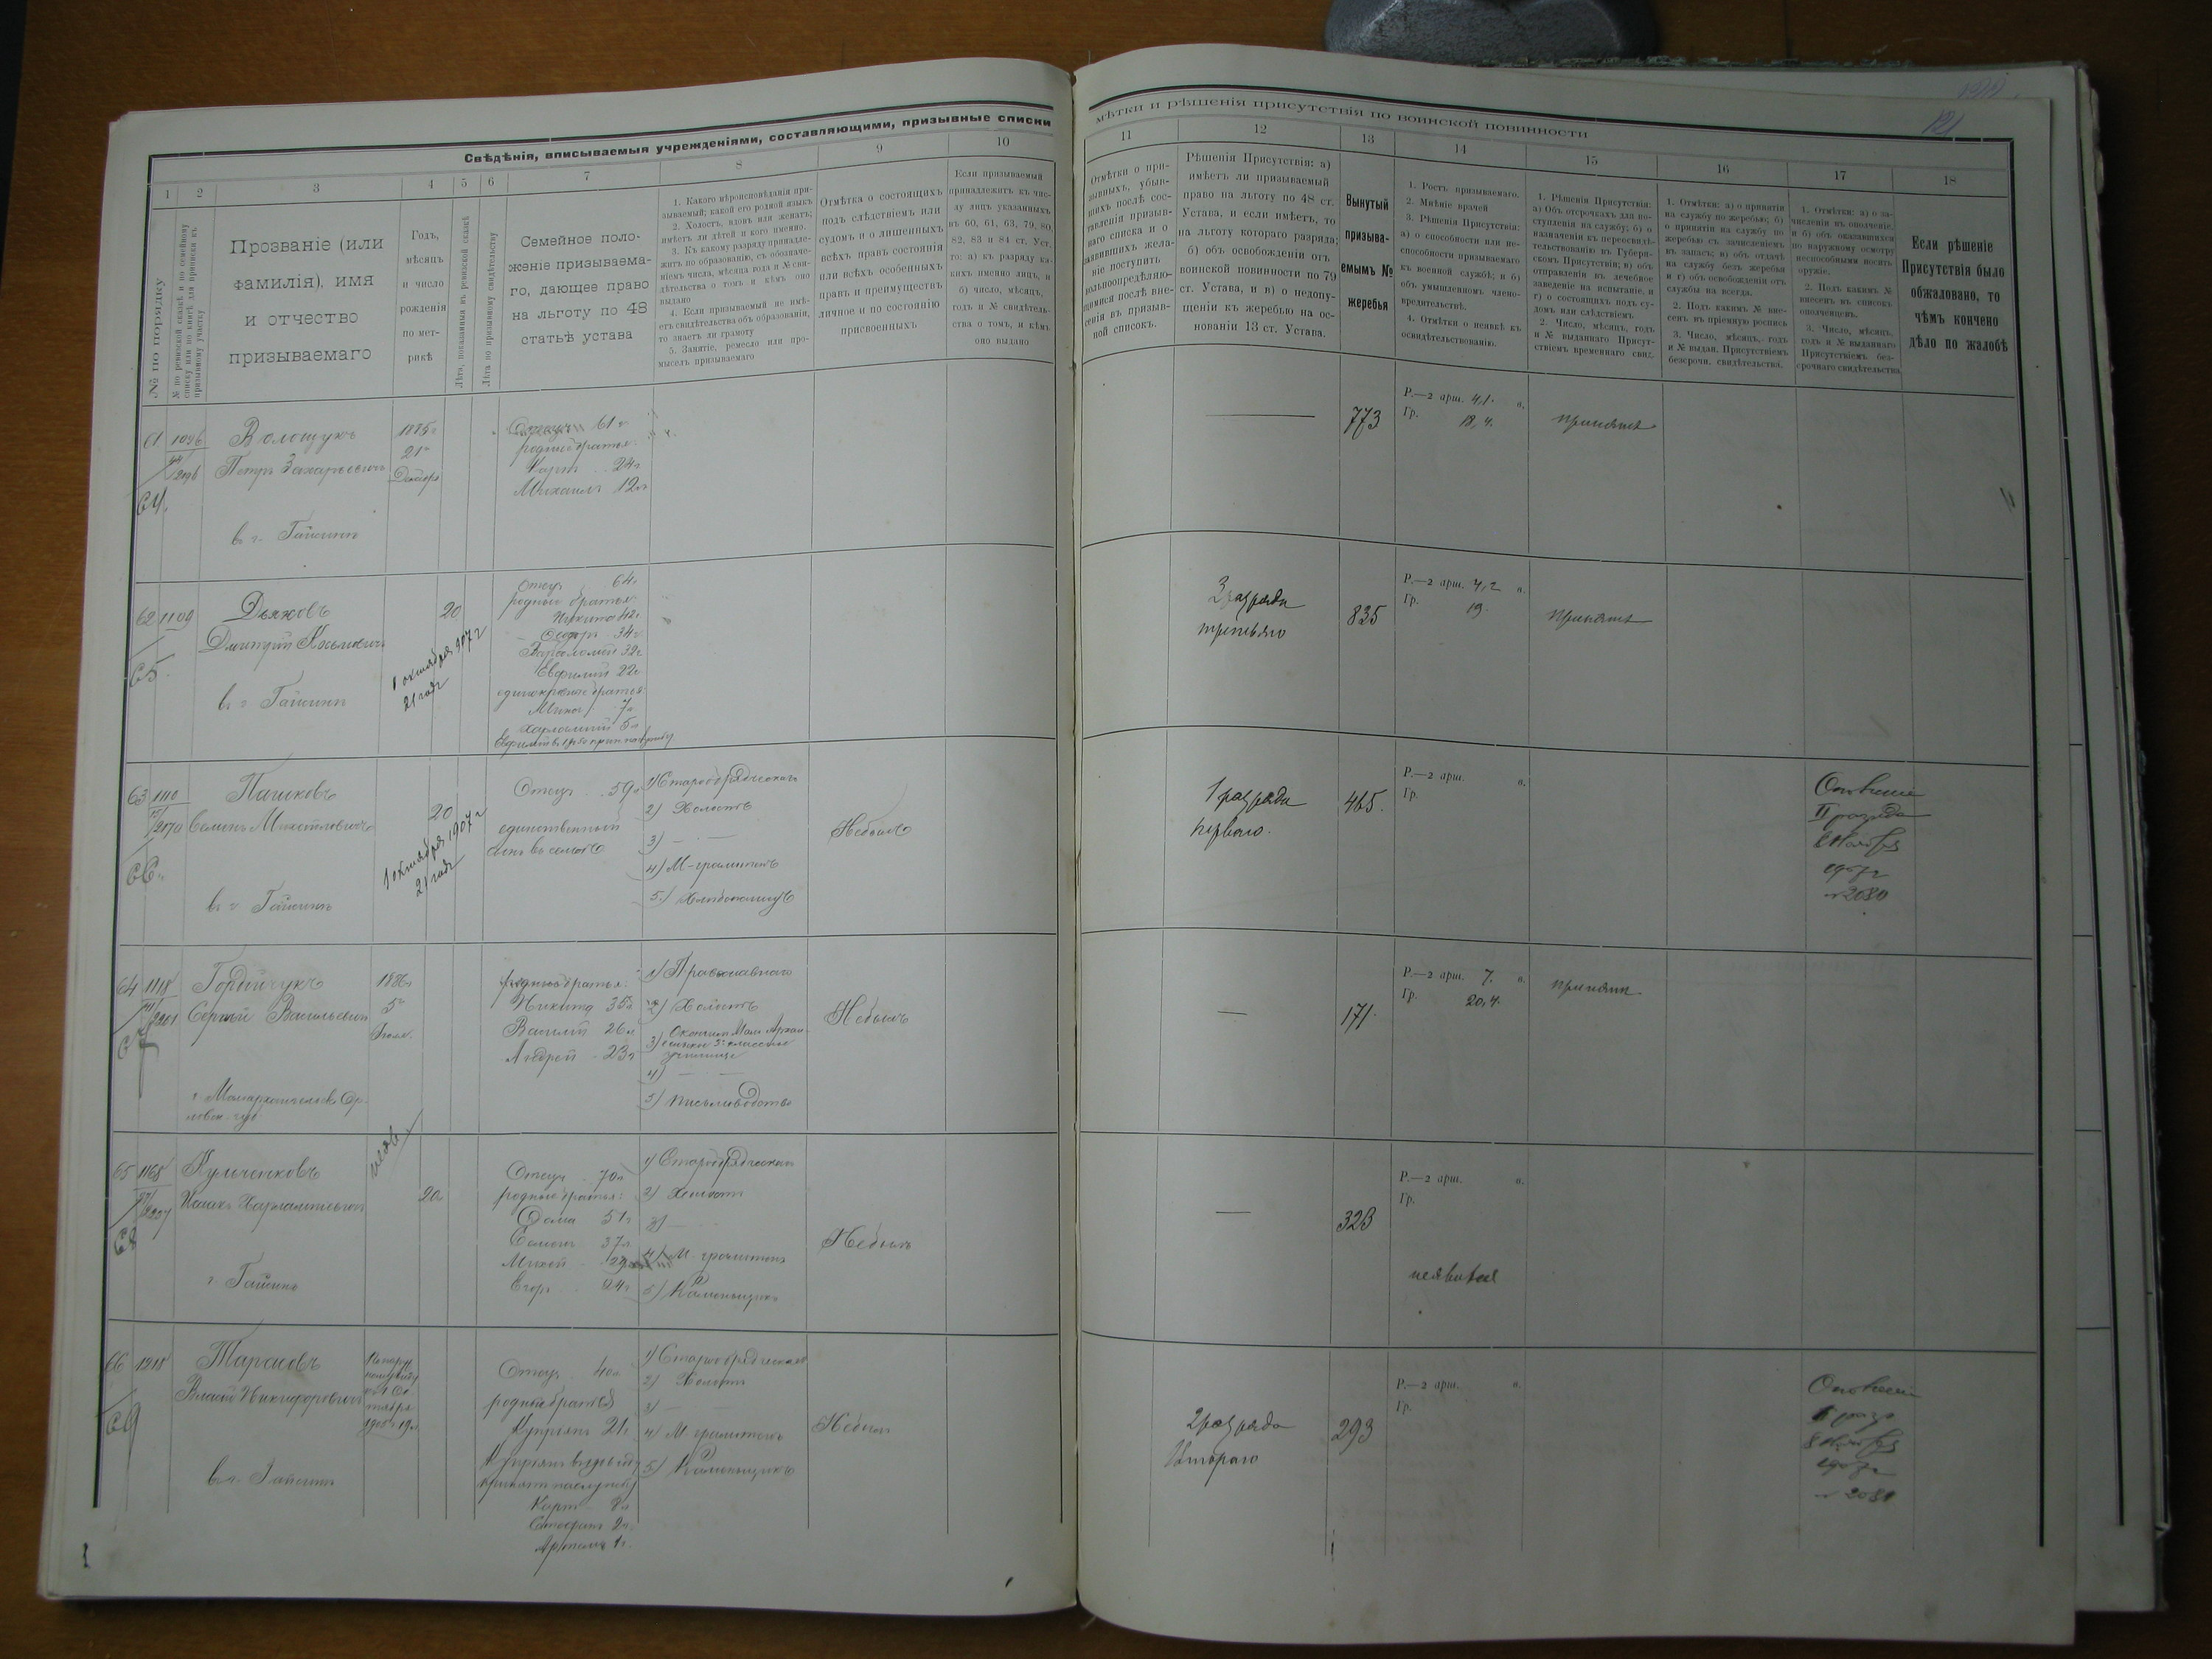 Свѣдѣнія, вписываемыя учрежденіями, составляющими, призывные списки
1 2 3 4 5 6 7 8 9 10
№ по порядку
№ по ревизской сказкѣ и по семейному
списку или по книгѣ для приписки къ
призывному участку
Прозваніе (или
фамилія), имя
и отчество
призываемаго
Годъ,
мѣсяцъ
и число
рожденія
по мет-
рикѣ
Лѣта, показанныя въ ревизской сказкѣ
Лѣта по призывному свидѣтельству
Семейное поло-
женіе призывaема-
го, дающее право
на льготу по 48
статьѣ устава
1. Какого вѣроисповѣданія при-
зываемый; какой его родной языкъ
2. Холостъ, вдовъ или женатъ;
имѣетъ ли дѣтей и кого именно.
3. Къ какому разряду принадле-
житъ по образованію, съ обозначе-
ніемъ числа, мѣсяца года и № сви-
дѣтельства о томъ и кѣмъ оно
выдано
4. Если призываемый не имѣ-
етъ свидѣтельства объ образованіи,
то знаетъ ли грамоту
5. Занятіе, ремесло или про-
мыселъ призываемаго
Отмѣтка о состоящихъ
подъ слѣдствіемъ или
судомъ и о лишенныхъ
всѣхъ правъ состоянія
или всѣхъ особенныхъ
правъ и преимуществъ
личное и по состоянію
присвоенныхъ
Если призываемый
принадлежитъ къ чис-
лу лицъ указанныхъ
въ 60, 61, 63, 79, 80,
82, 83 и 84 ст. Уст.,
то: а) къ разряду ка-
кихъ именно лицъ, и
б) число, мѣсяцъ,
годъ и № свидѣтель-
ства о томъ, и кѣмъ
оно выдано
61 1096
2096
64.
Волощукъ
Петръ Захарьевичъ
в г. Гайсинѣ
1885г
21
Отецъ 61 г
родные братья:
Карпъ 24г
Михаилъ 12л
62 1109
65.
Дьяковъ
Дмитрій Косьмичъ
в г Гайсинѣ
20
1 октября 1907 г
21 годъ
Отецъ 64г
родные братья:
Никита 42г
Ѳедоръ 34г
32г
Евфимій 22г
единокровные братья:
7л
Харлампій 5л
63 1110
2070
66.
Пашковъ
в г Гайсинѣ
20
1 октября 1907 г
21 годъ
Отецъ 59л
единственный
сынъ въ семьѣ
1) Старообрядческаго
2) Холостъ
3) —
4) М-грамотенъ
5) Хлѣбопашецъ
Небылъ
64 1118
2201
Гордійчукъ
Сергѣй Васильевичъ
г Малоархангельскъ Ор-
ловск. губ.
1886г
5
родные братья:
Никита 35л
Василій 26л
Андрей 23г
1) Православнаго
2) Холостъ
3)
училище
4) —
5) Письмоводство
Небылъ
65 1168
2237
68
Кулешковъ
Исаакъ Харлампіевичъ
г. Гайсинъ
20
неяв.
Отецъ 70л
родные братья:
51г
37л
Михей
Егоръ 24г
1) Старообрядческаго
2) Холостъ
3) —
4) М. грамотенъ
5) Каменьщикъ
Небылъ
66 1218
69
Тарасовъ
Власій Никифоровичъ
в г. Гайсинѣ
1905г 19л
Отецъ 40л
родные братья
Купріянъ 21г
принятъ на службу
Карпъ 8л
2г
Артемъ 1г.
1) Старообрядческаго
2) Холостъ
3) —
4) М. грамотенъ
5) Каменьщикъ
Небылъ
мѣтки и рѣшенія присутствія по воинской повинности
121
11 12 13 14 15 16 17 18
Отмѣтки о при-
зывныхъ, убыв-
шихъ послѣ сос-
тавленія призыв-
наго списка и о
заявившихъ жела-
ніе поступить
вольноопредѣляю-
щимися послѣ вне-
сенія въ призыв-
ной списокъ.
Рѣшенія Присутствія: а)
имѣетъ ли призываемый
право на льготу по 48 ст.
Устава, и если имѣетъ, то
на льготу котораго разряда;
б) объ освобожденіи отъ
воинской повинности по 79
ст. Устава, и в) о недопу-
щеніи къ жеребью на ос-
нованіи 13 ст. Устава.
Вынутый
призыва-
емымъ №
жеребья
1. Ростъ призываемаго.
2. Мнѣніе врачей
3. Рѣшенія Присутствія:
а) о способности или не-
способности призываемаго
къ военной службѣ; и б)
объ умышленномъ члено-
вредительствѣ.
4. Отмѣтки о неявкѣ къ
освидѣтельствованію.
1. Рѣшенія Присутствія:
а) Объ отсрочкахъ для по-
ступленія на службу; б) о
назначеніи къ переосвидѣ-
тельствованію въ Губерн-
скомъ Присутствіи; в) объ
отправленіи въ лечебное
заведеніе на испытаніе, и
г) о состоящихъ подъ су-
домъ или слѣдствіемъ.
2. Число, мѣсяцъ, годъ
и № выданнаго Присут-
ствіемъ временнаго свид.
1. Отмѣтки: а) о принятіи
на службу по жеребью; б)
о принятіи на службу по
жеребью съ зачисленіемъ
въ запасъ; в) объ отдачѣ
на службу безъ жеребья
и г) объ освобожденіи отъ
службы на всегда.
2. Подъ какимъ № вне-
сенъ въ пріемную роспись
3. Число, мѣсяцъ, годъ
и № выдан. Присутствіемъ
безсрочн. свидѣтельства.
1. Отмѣтки: а) о за-
численіи въ ополченіе,
и б) объ оказавшихся
по наружному осмотру
неспособными носить
оружіе.
2. Подъ какимъ №
внесенъ въ списокъ
ополченцевъ.
3. Число, мѣсяцъ,
годъ и № выданнаго
Присутствіемъ без-
срочнаго свидѣтельства
Если рѣшеніе
Присутствія было
обжаловано, то
чѣмъ кончено
дѣло по жалобѣ
— 773
Р.—2 арш. 4,1. в.
Гр. 18,4.
принятъ
3 разряда
третьяго
835
Р.—2 арш. 4,2 в.
Гр. 19.
Принятъ
1 разряда
перваго.
465.
Р.—2 арш. в.
Гр.
Ополченіе
II разряда
8 Ноября
1907г
№ 2080
— 171.
Р.—2 арш. 7. в.
Гр. 20,4.
принятъ
— 323
Р.—2 арш. в.
Гр.
неявился
2 разряда
Втораго
293
Р.—2 арш. в.
Гр.
Ополченіе
разр
8 Ноября
1907г
№ 2081